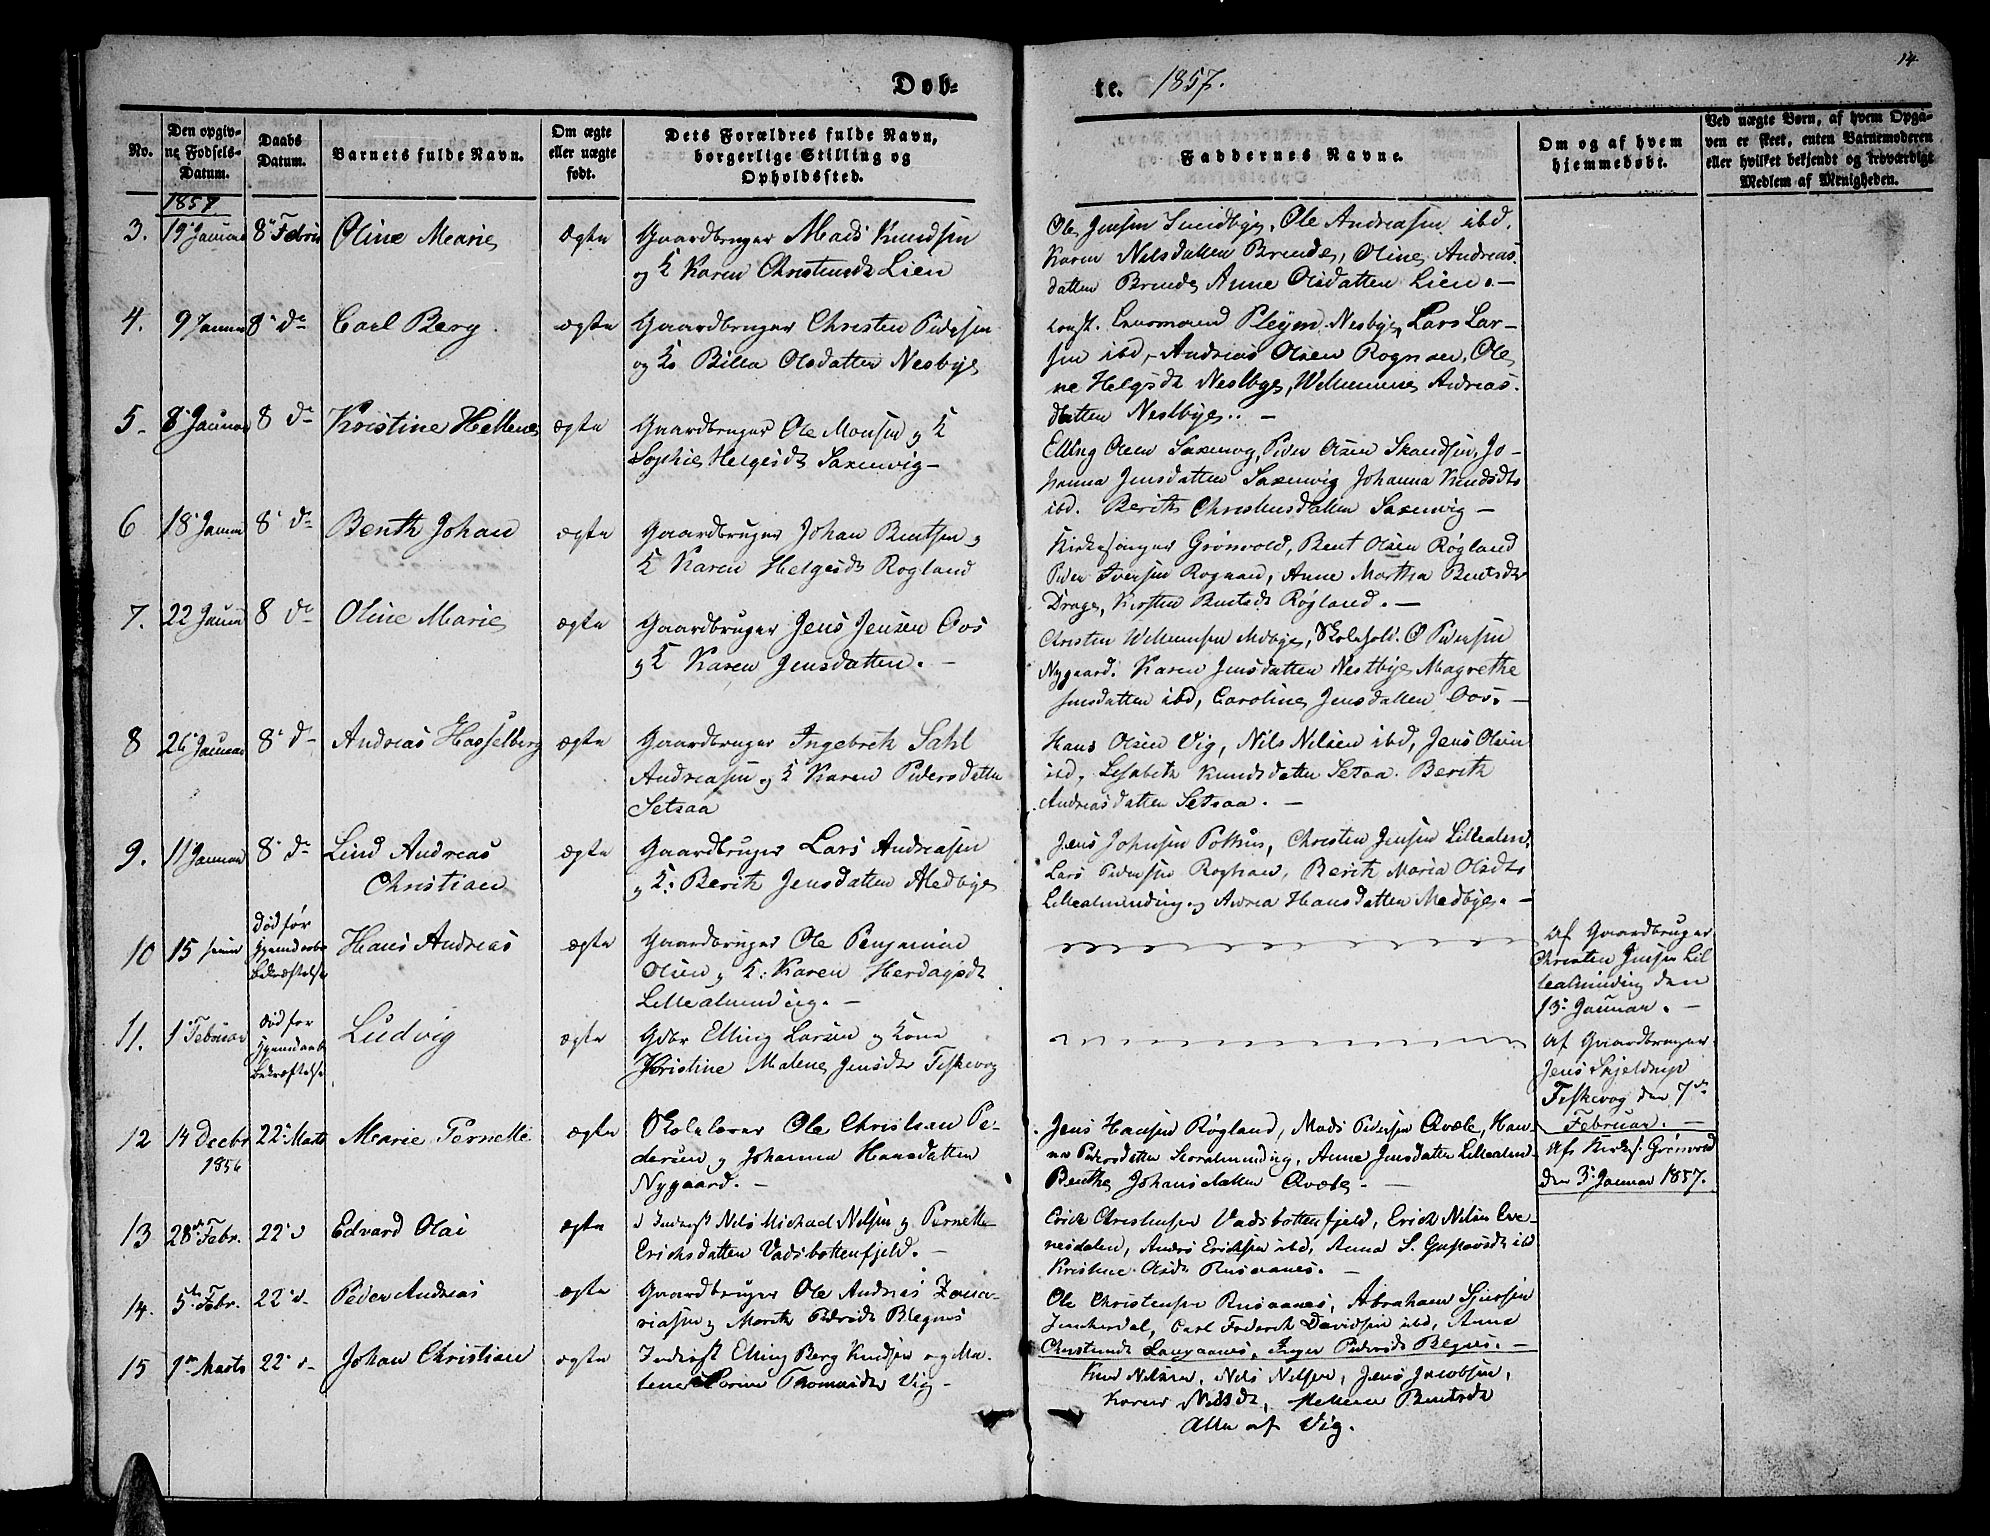 Døb-
te. 1857.
14
No.
Den opgiv-
ne Fødsels-
Datum.
Daabs
Datum.
Barnets fulde Navn.
Om ægte
eller uægte
født.
Dets Forældres fulde Navn,
borgerlige Stilling og
Opholdssted.
Faddernes Navne.
Om og af hvem
hjemmedøbt.
Ved uægte Børn, af hvem Opga-
ven er skeet, enten Barnemoderen
eller hvilket bekjendt og troværdigt
Medlem af Menigheden.
1857
3. 19 Januar 8 Febr Oline Marie ægte Gaardbruger Mads Knudsen
og K Karen Christensdt Lien
Ole Jensen Sundbye, Ole Andreasen ibd.
Karen Nilsdatter Brende, Oline Andreas
datter Brende Anne Olsdatter Lien.
4. 9 Januar 8 do Carl Berg ægte Gaardbruger Christen Pedersen
og K Billa Olsdatter Nesbye
Pleym Nesbye, Lars Lar-
sen ibd, Andreas Olsen Rognan, Ole
ne Helgesdt Nestbye, Willumine Andreas
datter Nestbye.
5 8 Januar 8 do Kristine Hellene ægte Gaardbruger Ole Monsen og K
Sophie Helgesdt Saxenvig
Elling Olsen Saxenvig, Peder Olsen Skandsen, Jo-
hanna Jensdatter Saxenvig Johanna Knudsdt
ibd. Berith Christensdatter Saxenvig
6 18 Januar 8 do Benth Johan ægte Gaardbruger Johan Bentsen og
K Karen Helgesdt Rogland
Kirkesanger Grønvold, Bent Olsen Røgland
Peder Iversen Rognan, Anne Martha Bentsdt
Drage, Kirsten Bentsdt Røgland.
7. 22 Januar 8 do Oline Marie ægte Gaardbruger Jens Jensen Oos
og K Karen Jensdatter.
Christen Willumsen Medbye, Skolehold. O Pedersen
Nygaard. Karen Jensdatter Nestbye Magrethe
Jensdatter ibd, Caroline Jensdatter Oos.
8 26 Januar 8 do Andreas Hasselberg ægte Gaardbruger Ingebrik Dahl
Andreasen og K Karen Pedersdatter
Setsaa
Hans Olsen Vig, Nils Nilsen ibd, Jens Olsen
ibd, Lisabeth Knudsdatter Setsaa. Berith
Andreasdatter Setsaa.
9. 11 Januar 8 do Lind Andreas
Christian ægte Gaardbruger Lars Andreasen
og K: Berith Jensdatter Medbye
Jens Johnsen Pothus, Christen Jensen Lillealm.
Lars Pedersen Rognan, Berith Maria Olsdt
Lillealmending og Anna Hansdatter Medbye.
10 15 Død før
Hjemdaabs
Bekræftelse Hans Andreas ægte Gaardbruger Ole Benjamin
Olsen og K: Karen Herdagsdt
Lillealmending.
Af Gaardbruger
Christen Jensen Lil
lealminding den
13 Januar.
11. 1 Februar død før
Hjemdaabs
Bekræftelse Ludvig ægte Gdbr Elling Larsen og Kone
Kristine Malene Jensdt Fiskevog
Af Gaardbruger
Jens Skjeldrup
Fiskevog den 7de
Februar.
12 14 Decbr
1856 22 Marts Marie Pernelle ægte Skolelærer Ole Christian Pe-
dersen og Johanna Hansdatter
Nygaard.
Jens Hansen Røgland, Mads Pedersen Qvæle, Han-
na Pedersdatter Storalmending, Anne Jensdatter Lillealm.
Benthe Johansdatter Qvæle.
Af Kirkes. Grønvold
den 3 Januar 1857.
13 28 Febr. 22 d Edvard Olai ægte Inderst Nils Michael Nilsen og Pernelle
Erichsdatter Vadsbottenfjeld.
Erick Christensen Vadsbottenfjeld, Erick Nilsen Eve-
nesdalen, Anders Ericksen ibd, Anna S. Gustavsdt ibd
Kristine Olsdt Rusaanes.
14. 5te Febr. 22 d Peder Andreas ægte Gaardbruger Ole Andreas Zacha-
riasen og Marith Pedersdt Blegnes
Ole Christensen Rusaanes, Abraham Siursen
Junkerdal, Carl Frederik Davidsen ibd, Anna
Christensdt Langaanes, Inger Pedersdt Blegnes.
15 1 Marts 22 d Johan Christian ægte Inderst Elling Berg Knudsen og Ma-
lene Thomasdtr Vig
Knud Nilsen, Nils Nilsen, Jens Jacobsen,
Karen Nilsdt, Bentsdt
Alle af Vig.